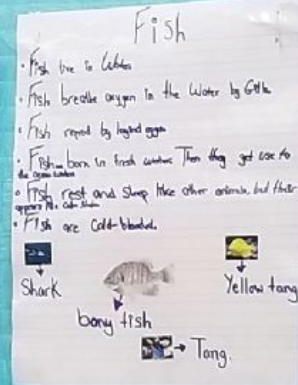 Fish
• Fish live in Water
• Fish breathe oxygen in the Water by Gills
• Fish by
• Fish born in fresh Then they get use to
the
• Fish rest and Sleep like other animals, but their
• Fish are Cold-blooded.
Shark
Yellow tang
bony fish
→ Tang.